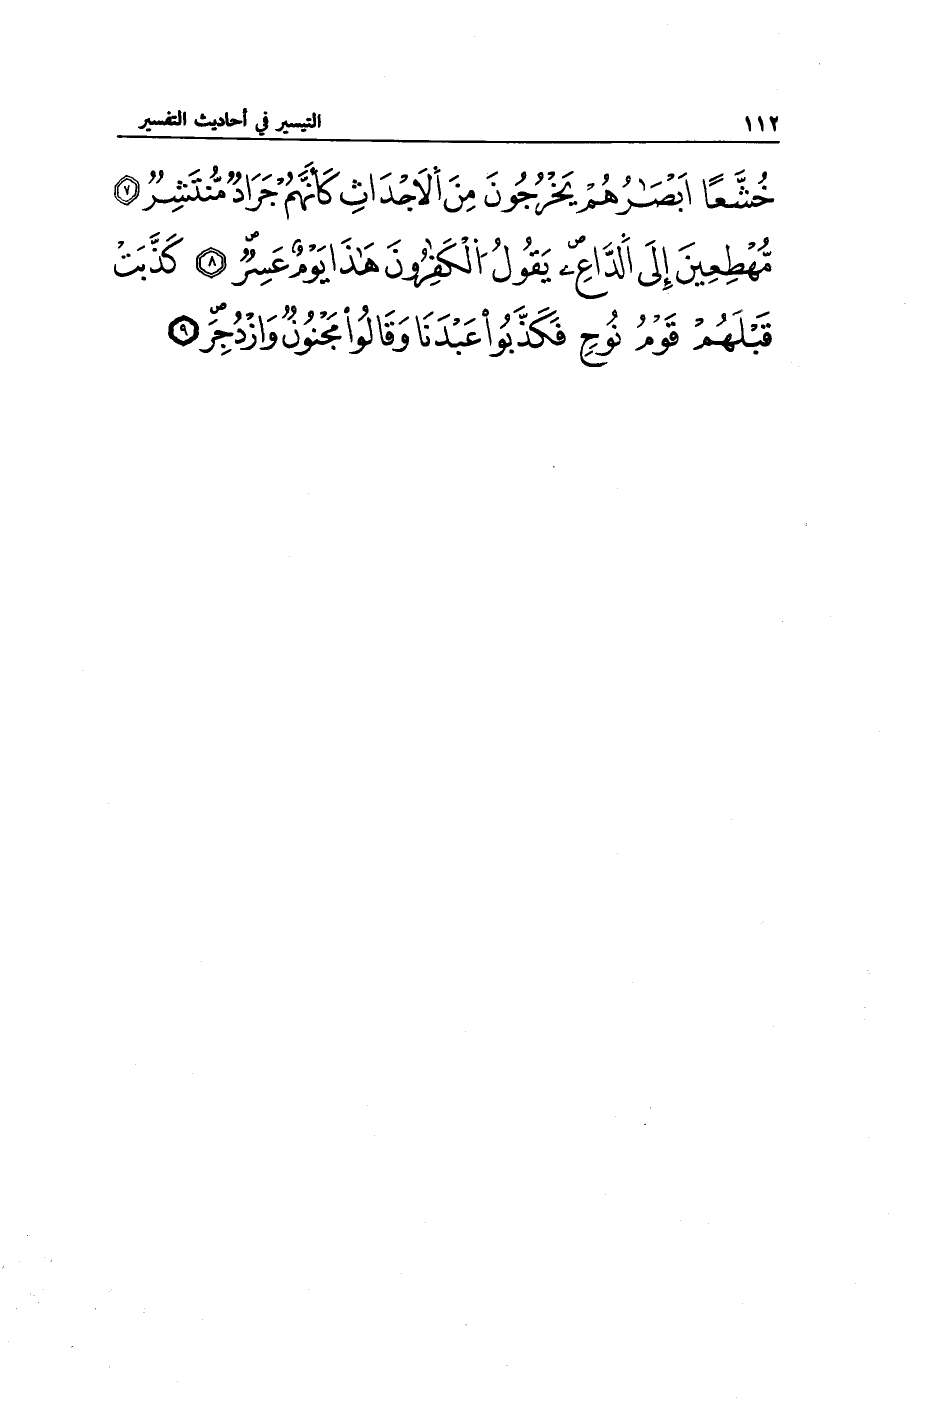 ١١٢ التيسير في أحاديث التفسير
خُشَّعًا اَبْصَٰرُهُمْ يَخْرُجُونَ مِنَ اَ۬لَاجْدَاثِ كَأَنَّهُمْ جَرَادٌ مُّنتَشِرٌ ٧
مُّهْطِعِينَ إِلَى اَ۬لدَّاعِۦ يَقُولُ اُ۬لْكَٰفِرُونَ هَٰذَا يَوْمٌ عَسِرٌ ٨ كَذَّبَتْ
قَبْلَهُمْ قَوْمُ نُوحٍ فَكَذَّبُواْ عَبْدَنَا وَقَالُواْ مَجْنُونٌ وَازْدُجِرَ ٩